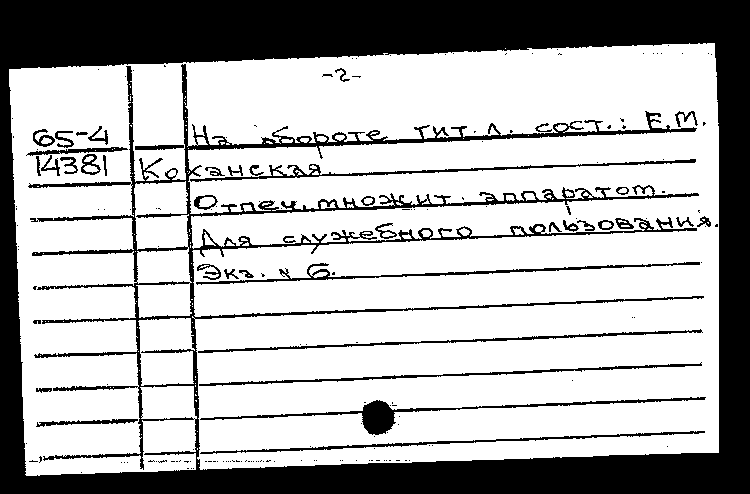 -2-
65-4 На обороте тит. л. сост.: Е.М.
14381 Коханская.
Отпеч. множит. аппаратом.
Для служебного пользования.
Экз. № 6.